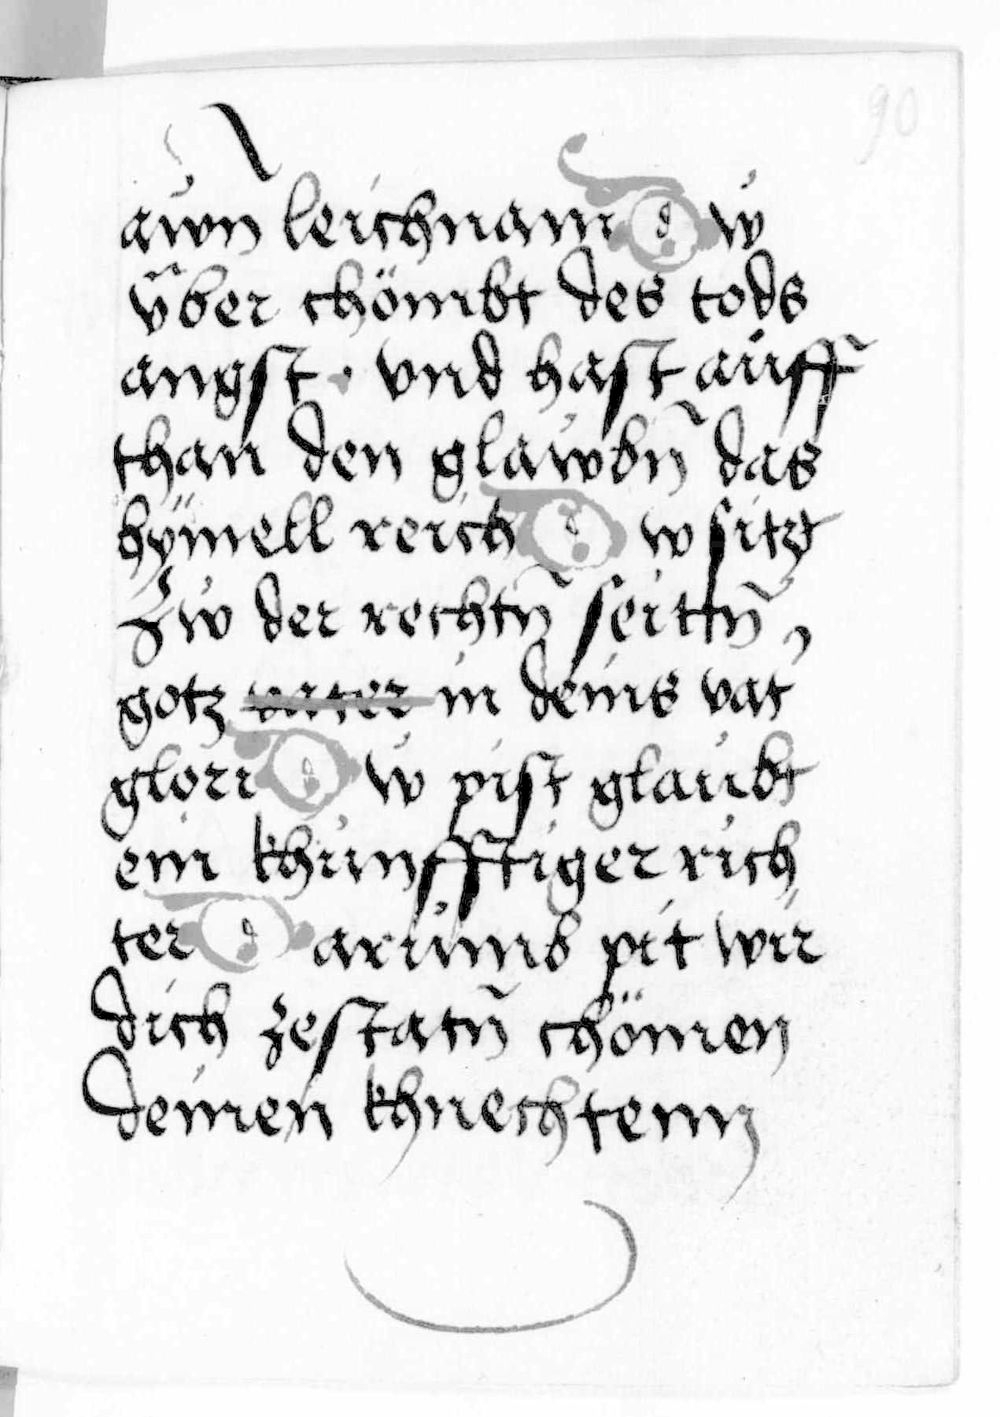 90
awn leichnam Dw
vber chömbt des tods
angst · vnd hast auff
than den glawbn̄ das
hÿmell reich Dw sitzt
Zw der rechtn̄ seittn̄
gotz vater in deins vat
glori Dw pist glaubt
ein khunfftiger rich
ter Darumb pit wir
dich zestatn̄ chömen
deinen khnechtenn